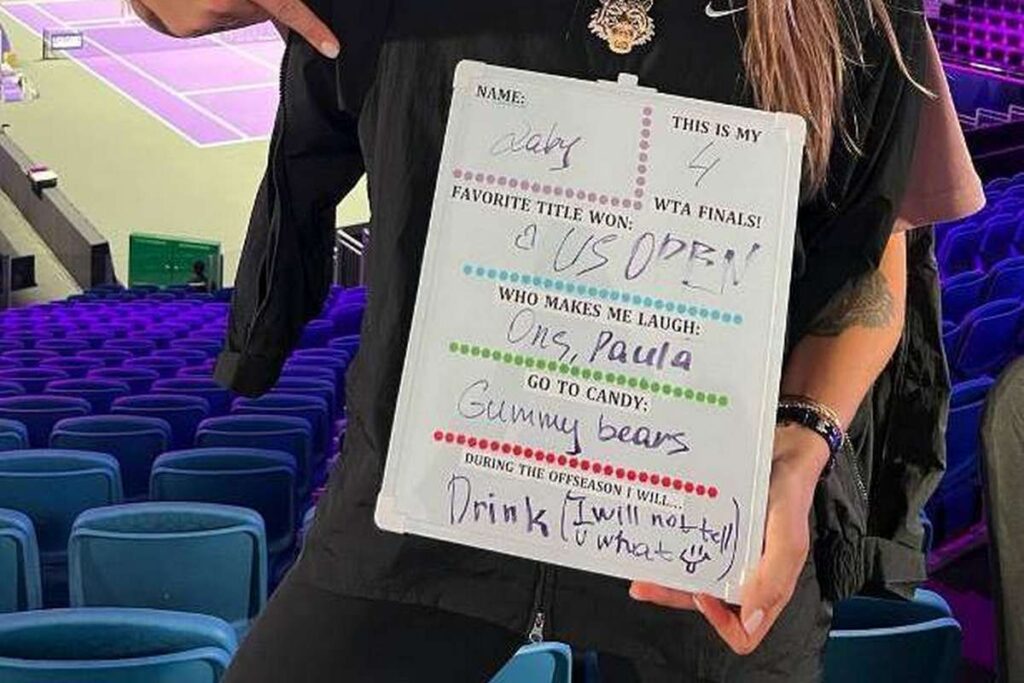 NAME:
THIS IS MY
4
WTA FINALS!
FAVORITE TITLE WON:
US OPEN
WHO MAKES ME LAUGH:
Ons, Paula
GO TO CANDY:
Gummy bears
DURING THE OFFSEASON I WILL...
Drink (I will not tell
u what )